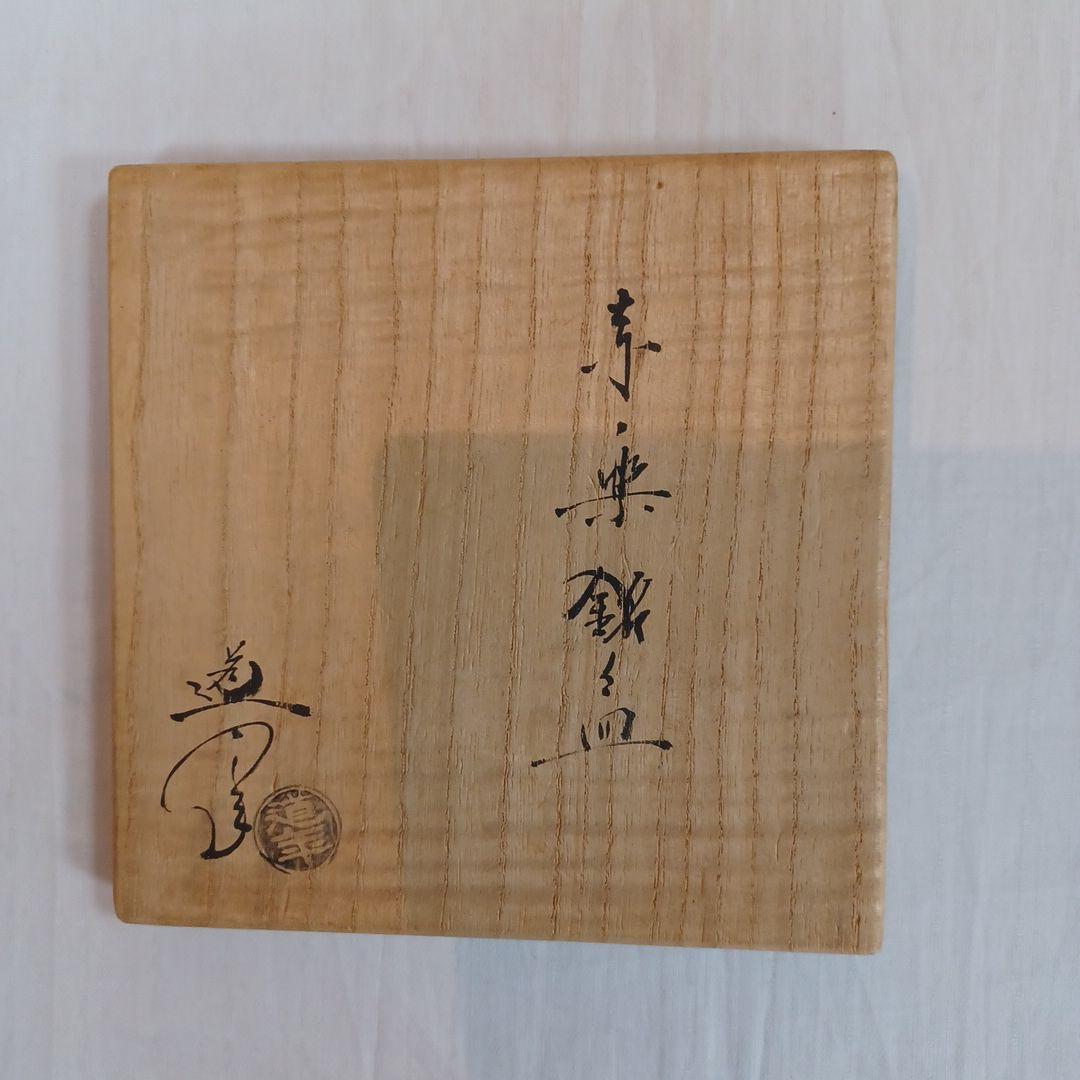 赤楽銘々皿
道